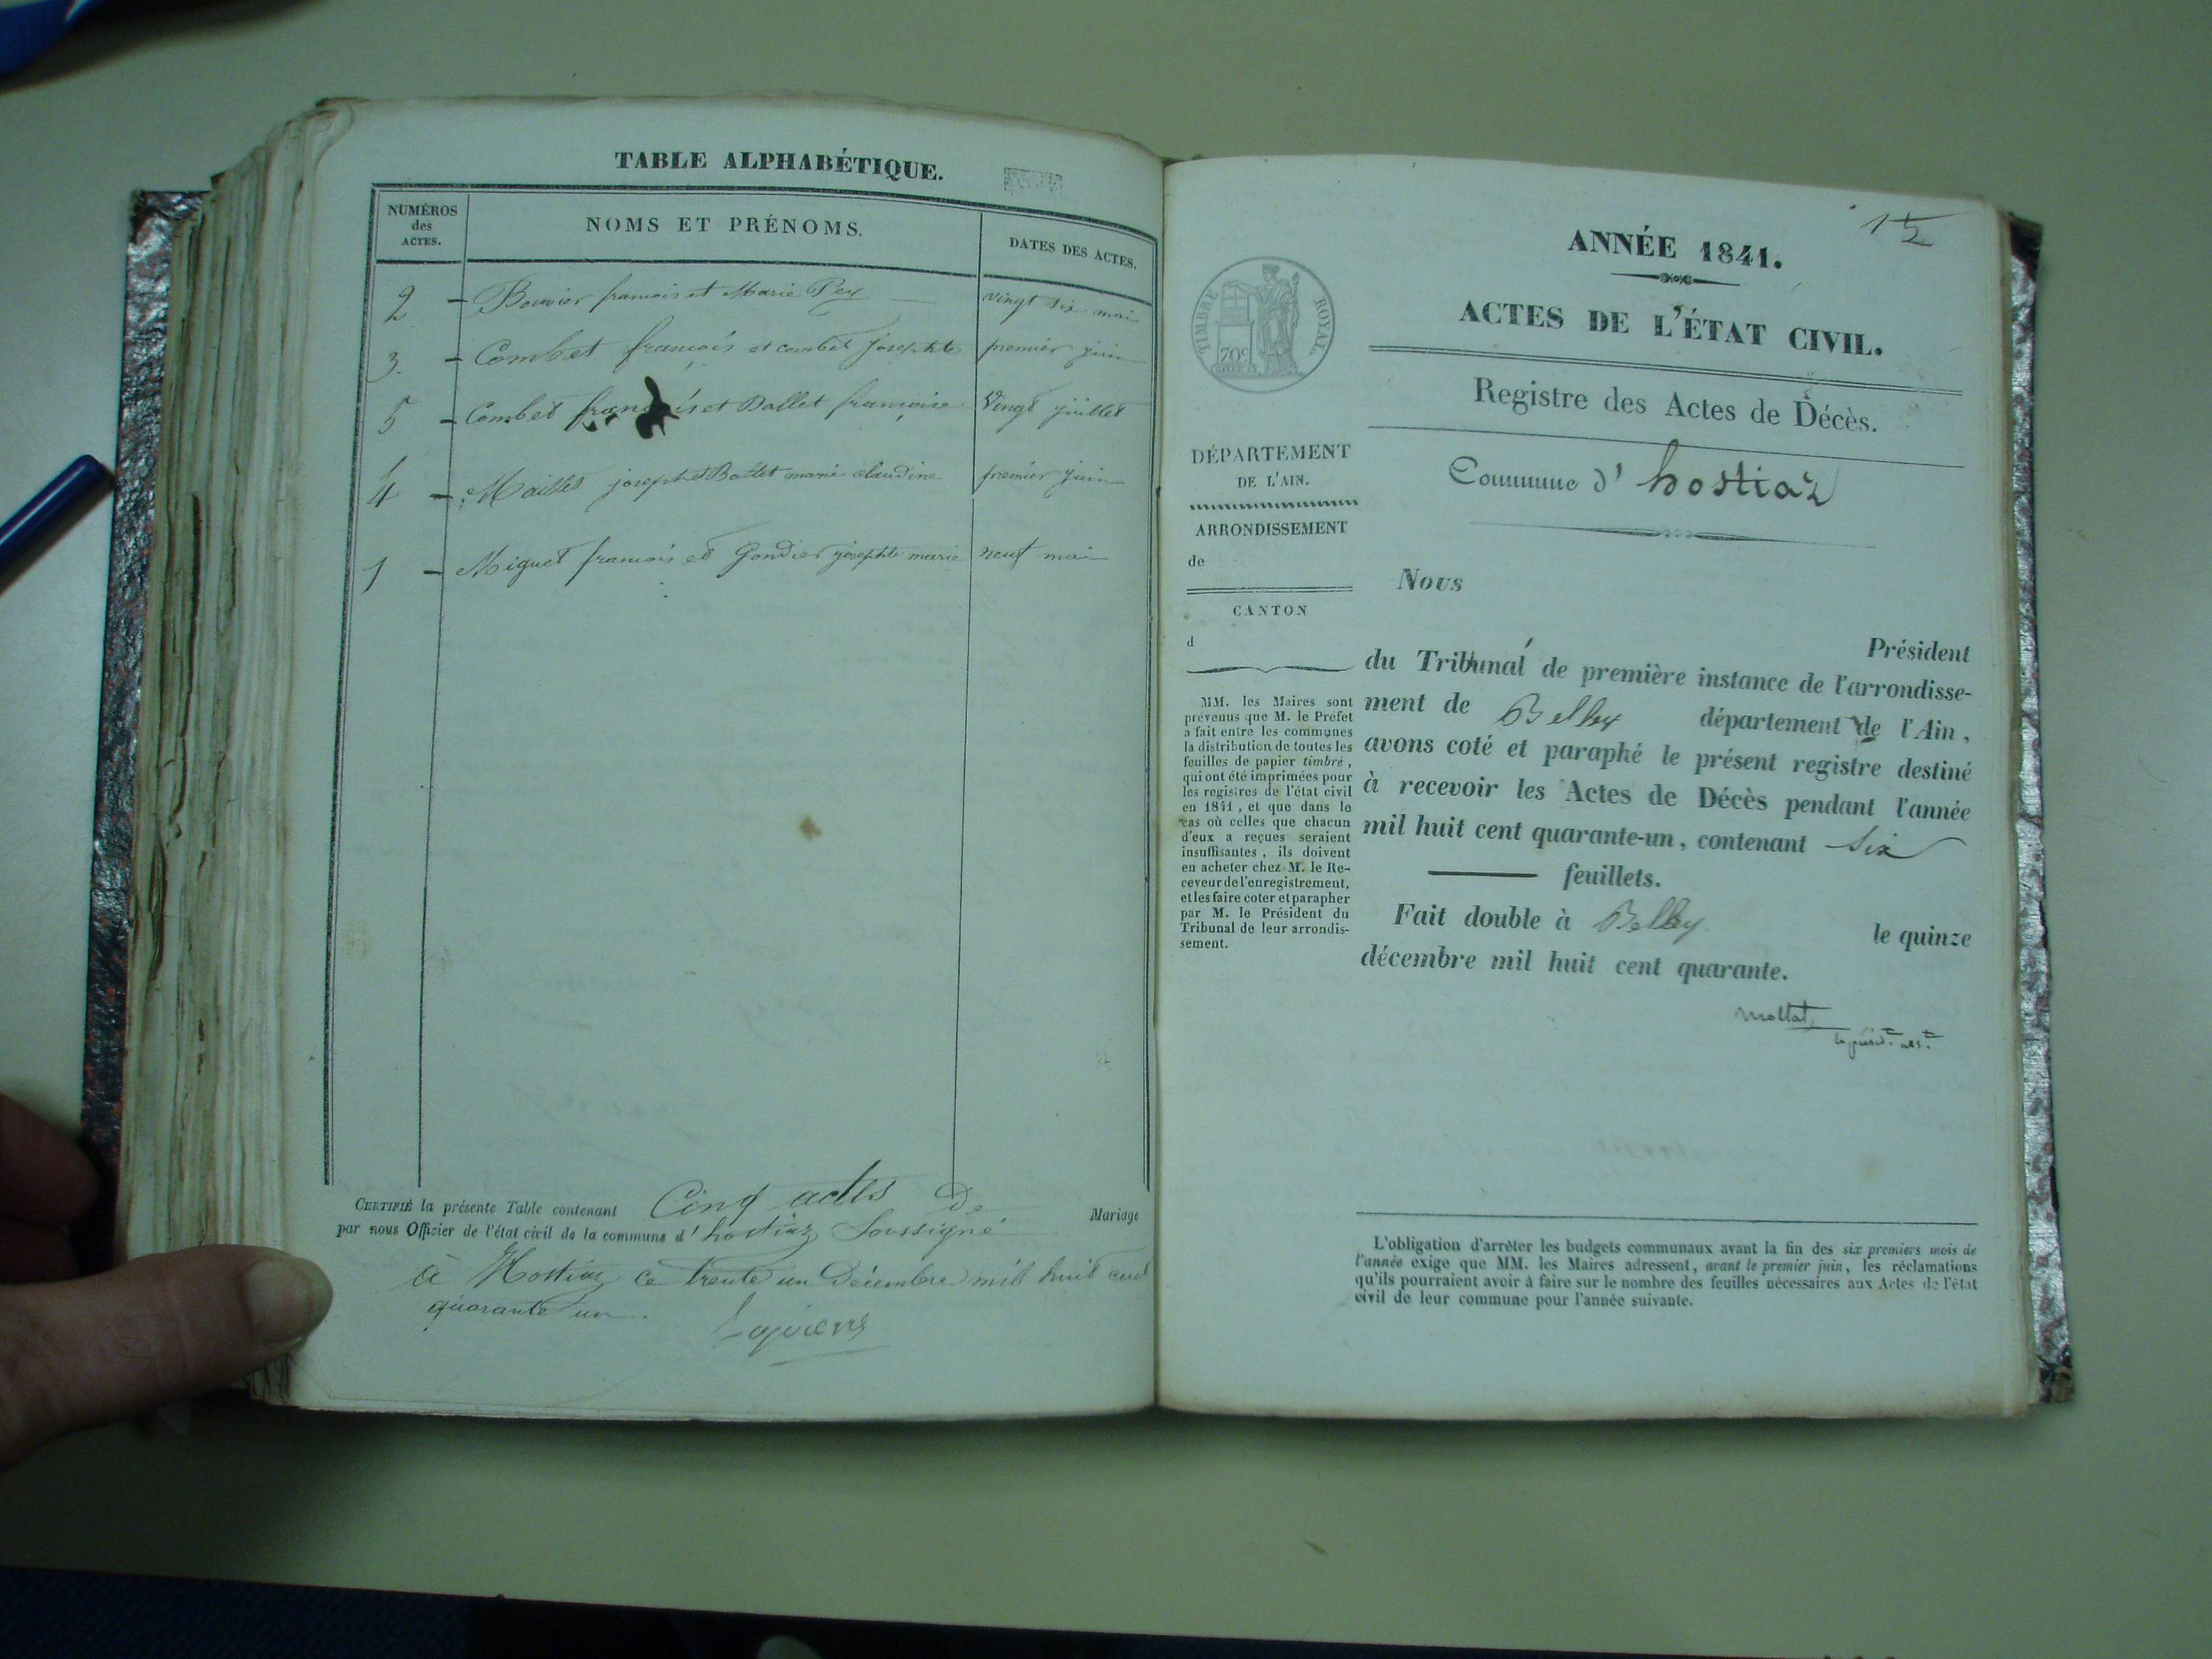 TABLE ALPHABÉTIQUE.
NUMÉROS
des
ACTES.
NOMS ET PRÉNOMS.
DATES DES ACTES.
2 - Bouvier francois et Marie Pey - vingt six mai
3. - Combet francois et combet josephte premier juin
5 - Combet francois et Ballet francoise Vingt juillet
4 - Maillet joseph et Ballet marie claudine premier juin
1 - Miguet francois et Gondier josephte marie neuf mai
CERTIFIÉ la présente Table contenant Cinq actes De Mariage
par nous Officier de l'état civil de la commune d' hostiaz Soussigné
à Hostiaz ce trente un Décembre mil huit cent
quarante un.
15
ANNÉE 1841.
ACTES DE L'ÉTAT CIVIL.
Registre des Actes de Décès.
Commune d' hostiaz
TIMBRE ROYAL.
70c
DÉPARTEMENT
DE L'AIN.
ARRONDISSEMENT
de
CANTON
d
MM. les Maires sont
prévenus que M. le Préfet
a fait entre les communes
la distribution de toutes les
feuilles de papier timbré,
qui ont été imprimées pour
les registres de l'état civil
en 1841, et que dans le
cas où celles que chacun
d'eux a reçues seraient
insuffisantes, ils doivent
en acheter chez M. le Re-
ceveur de l'enregistrement,
et les faire coter et parapher
par M. le Président du
Tribunal de leur arrondis-
sement.
Nous
Président
du Tribunal de première instance de l'arrondisse-
ment de Belley département de l'Ain,
avons coté et paraphé le présent registre destiné
à recevoir les Actes de Décès pendant l'année
mil huit cent quarante-un, contenant Six
feuillets.
Fait double à Belley le quinze
décembre mil huit cent quarante.
Mollat
L'obligation d'arrêter les budgets communaux avant la fin des six premiers mois de
l'année exige que MM. les Maires adressent, avant le premier juin, les réclamations
qu'ils pourraient avoir à faire sur le nombre des feuilles nécessaires aux Actes de l'état
civil de leur commune pour l'année suivante.